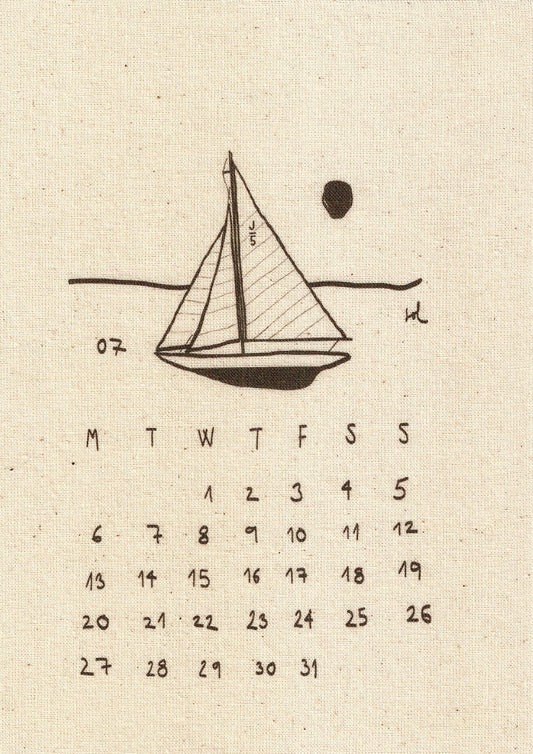 J
5
07
M T W T F S S
1 2 3 4 5
6 7 8 9 10 11 12
13 14 15 16 17 18 19
20 21 22 23 24 25 26
27 28 29 30 31